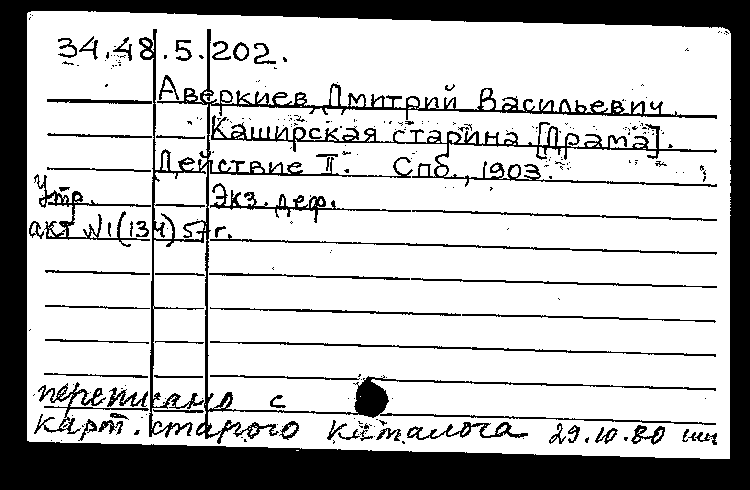 34.48.5.202.
Аверкиев, Дмитрий Васильевич.
Каширская старина. [Драма].
Действие II. Спб., 1903.
Утр. Экз. деф.
акт №1(134) 57 г.
переписано с
карт. старого каталога 29.10.80